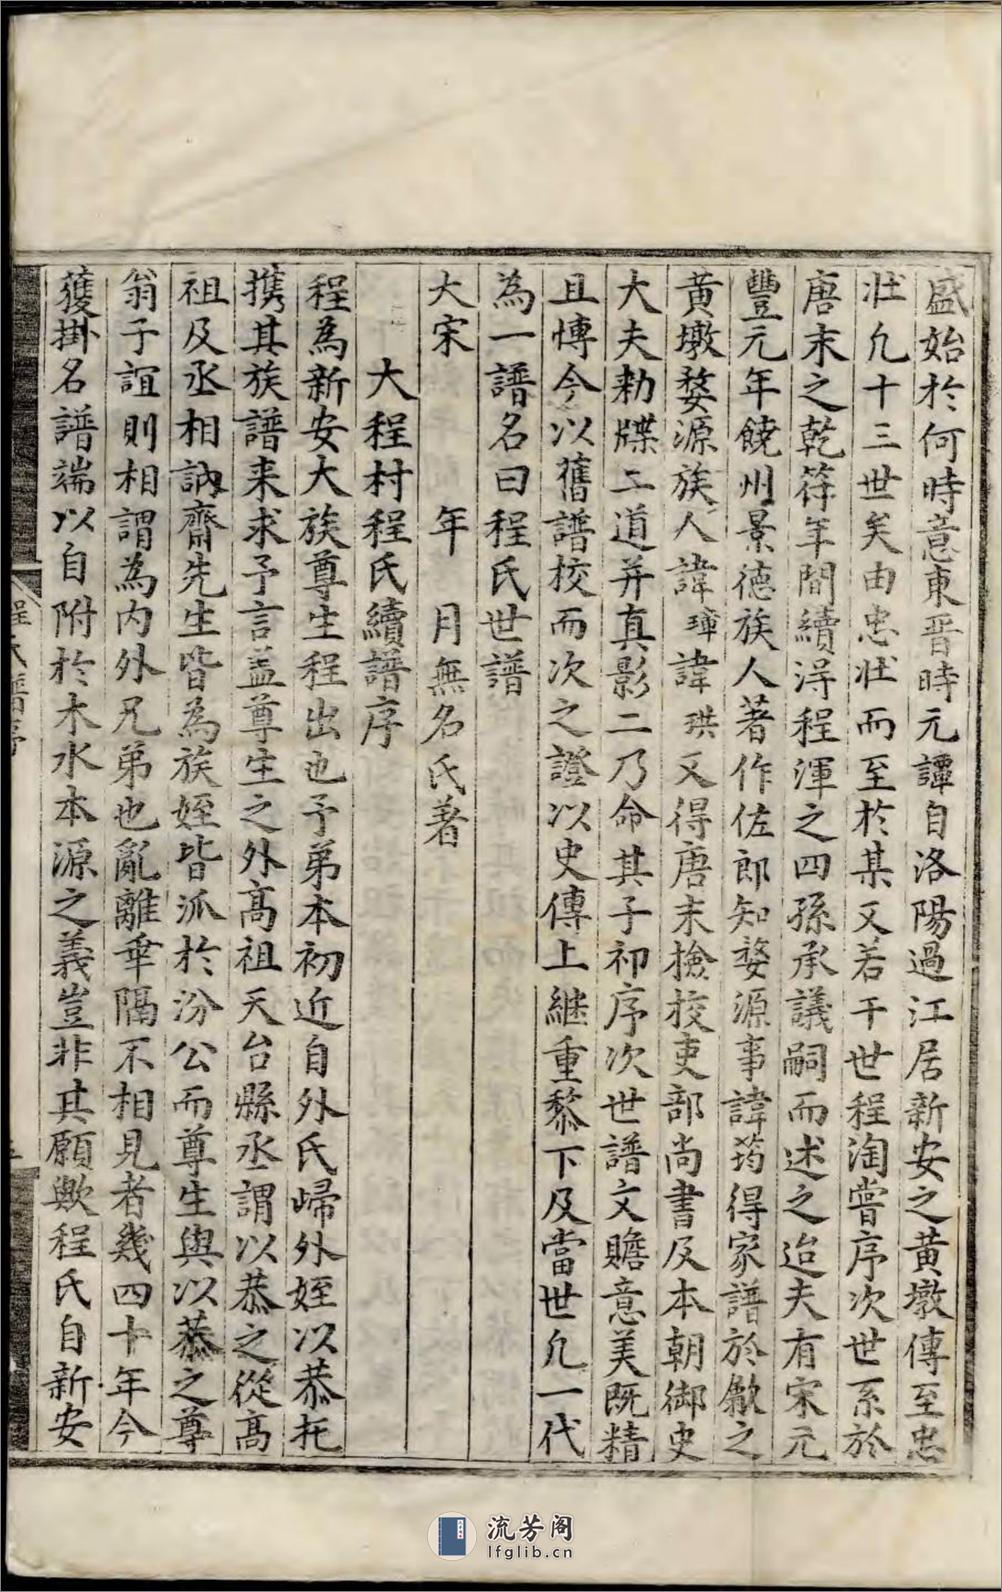 盛始於何時意東晋時元譚自洛陽過江居新安之黄墩傳至忠
壯凢十三世矣由忠壯而至於某又若干世程淘嘗序次世系於
唐末之乾符年間續淂程渾之四孫承議嗣而述之迨夫有宋元
豐元年饒州景德族人著作佐郎知婺源事諱筠得家譜於歙之
黄墩婺源族人諱璋諱珙又得唐末檢校吏部尚書及本朝御史
大夫勑牒二道并真影二乃命其子祁序次世譜文贍意美既精
且慱今以舊譜校而次之證以史傳上継重黎下及當世凢一代
為一譜名曰程氏世譜
大宋　年　月無名氏著
大程村程氏續譜序
程為新安大族尊生程出也予弟本初近自外氏歸外姪以恭扥
携其族譜来求予言盖尊生之外高祖天台縣丞謂以恭之從高
祖及丞相訥齋先生皆為族姪皆派於汾公而尊生與以恭之尊
翁子誼則相謂為内外兄弟也亂離乖隔不相見者幾四十年今
獲掛名譜端以自附於木水本源之義豈非其願歟程氏自新安
程氏譜序
流芳阁
lfglib.cn